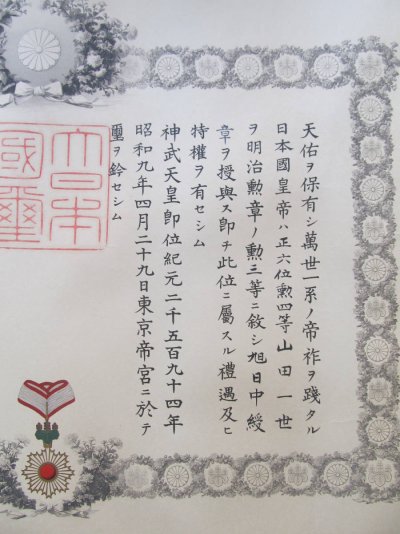 天佑ヲ保有シ萬世一系ノ帝祚ヲ踐タル
日本國皇帝ハ正六位勲四等山田一世
ヲ明治勲章ノ勲三等ニ敘シ旭日中綬
章ヲ授與ス即チ此位ニ屬スル禮遇及ヒ
特權ヲ有セシム
神武天皇即位紀元二千五百九十四年
昭和九年四月二十九日東京帝宮ニ於テ
璽ヲ鈐セシム
大日本
國璽